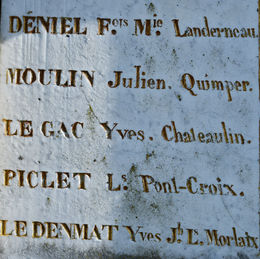 DÉNIEL Fcis Mie Landerneau.
MOULIN Julien. Quimper.
LE GAC Yves. Chateaulin.
PICLET Ls Pont-Croix.
LE DENMAT Yves Jh L. Morlaix